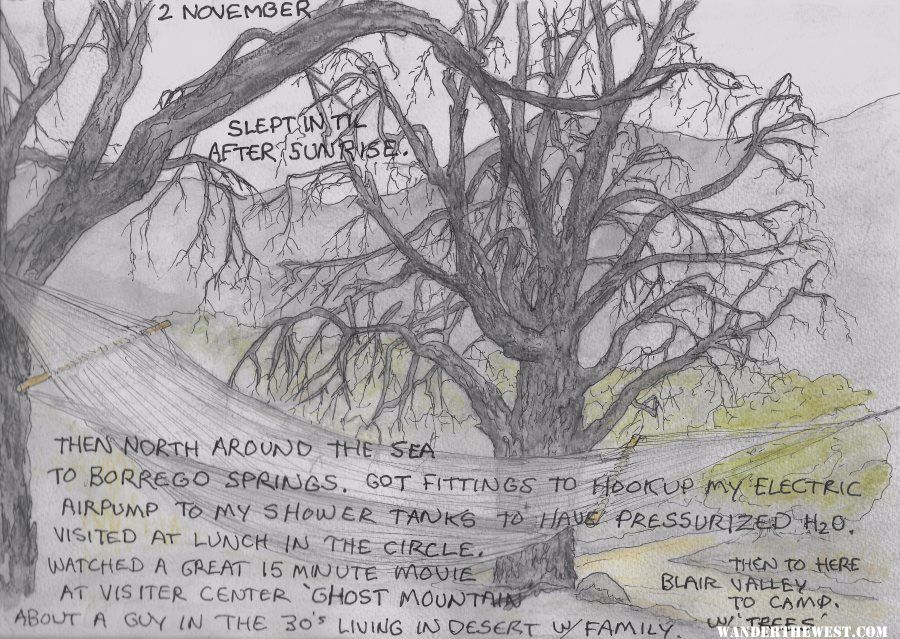 2 NOVEMBER
SLEPT IN TIL
AFTER SUNRISE.
THEN NORTH AROUND THE SEA
TO BORREGO SPRINGS. GOT FITTINGS TO HOOKUP MY ELECTRIC
AIRPUMP TO MY SHOWER TANKS TO HAVE PRESSURIZED H2O.
VISITED AT LUNCH IN THE CIRCLE.
WATCHED A GREAT 15 MINUTE MOVIE
AT VISITER CENTER 'GHOST MOUNTAIN
ABOUT A GUY IN THE 30's LIVING IN DESERT W/ FAMILY
THEN TO HERE
BLAIR VALLEY
TO CAMP.
W/ 'TREES'
WANDERTHEWEST.COM